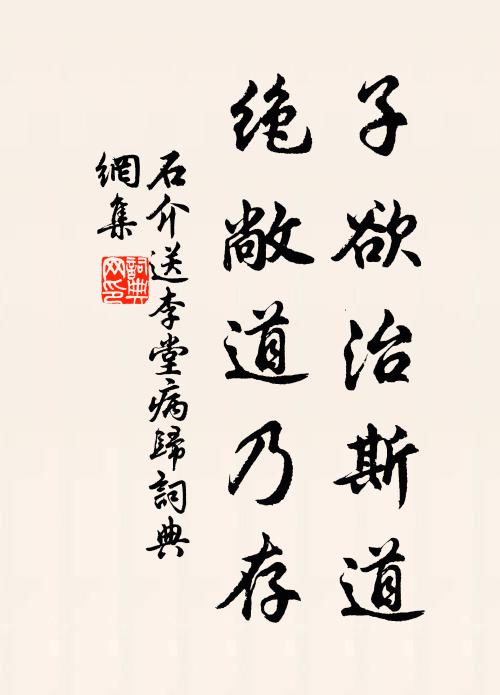 子欲治斯道
绝敞道乃存
石介送李堂病歸詞典
網集
詞典
网印